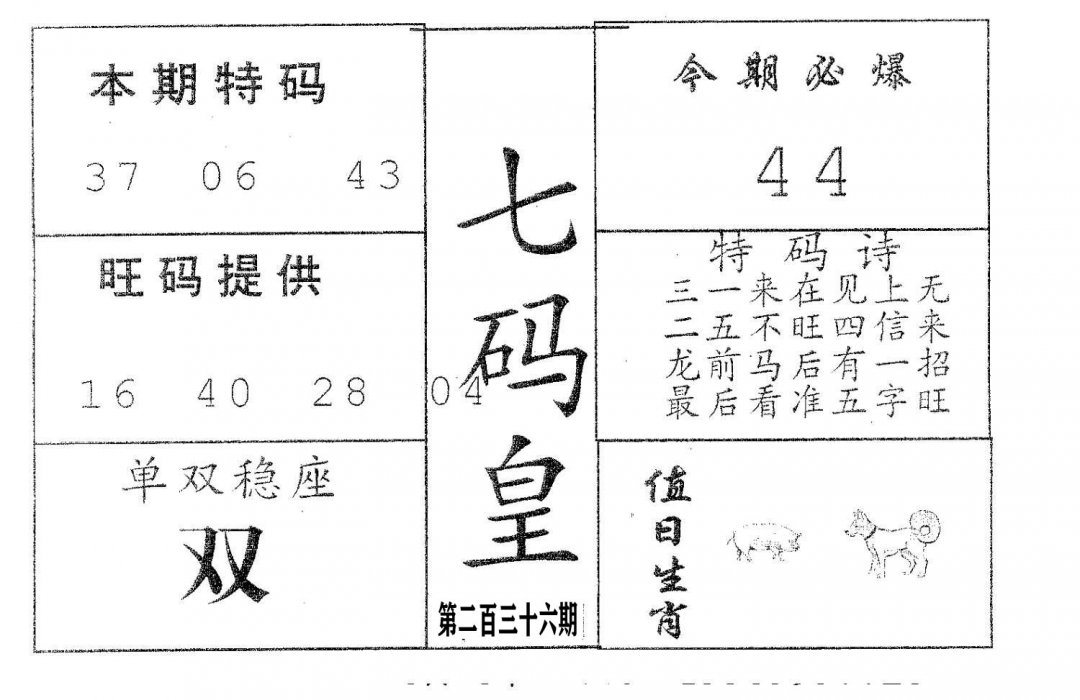 本期特码
37 06 43
旺码提供
16 40 28 04
单双稳座
双
七码皇
第二百三十六期
今期必爆
44
特码诗
三一来在见上无
二五不旺四信来
龙前马后有一招
最后看准五字旺
值日生肖